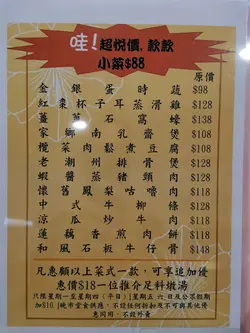 哇！超悅價，款款
小菜$88
原價
金銀蛋時蔬 $98
紅棗杯子耳蒸滑雞 $128
薑蔥石窩蠔 $138
家鄉南乳齋煲 $108
欖菜肉鬆煮豆腐 $108
老潮州排骨煲 $128
蝦醬蒸豬頸肉 $128
懷舊鳳梨咕嚕肉 $118
中式牛柳條 $128
涼瓜炒牛肉 $118
蓮藕香煎肉餅 $118
和風石板牛仔骨 $148
凡惠顧以上菜式一款，可享追加優
惠價$18一位推介足料燉湯
只限星期一至星期四（平日）|星期五 六 日及公眾假期
加$10.|晚市堂食供應，不設打折及不可與其他優
惠同用，不設外賣